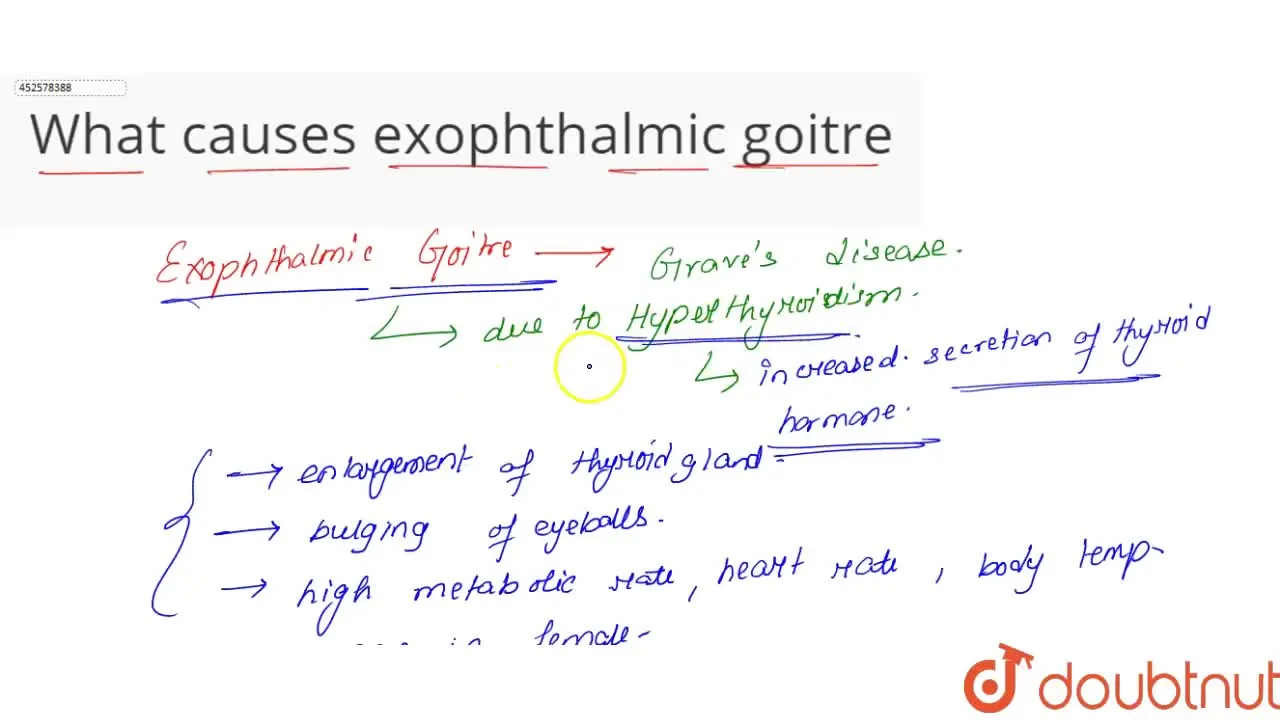 452578388
What causes exophthalmic goitre
Exophthalmic Goitre → Grave's disease.
due to Hyperthyroidism.
increased. secretion of thyroid
hormone.
→ enlargement of thyroid gland
→ bulging of eyeballs.
→ high metabolic rate, heart rate, body temp-
female-
doubtnut